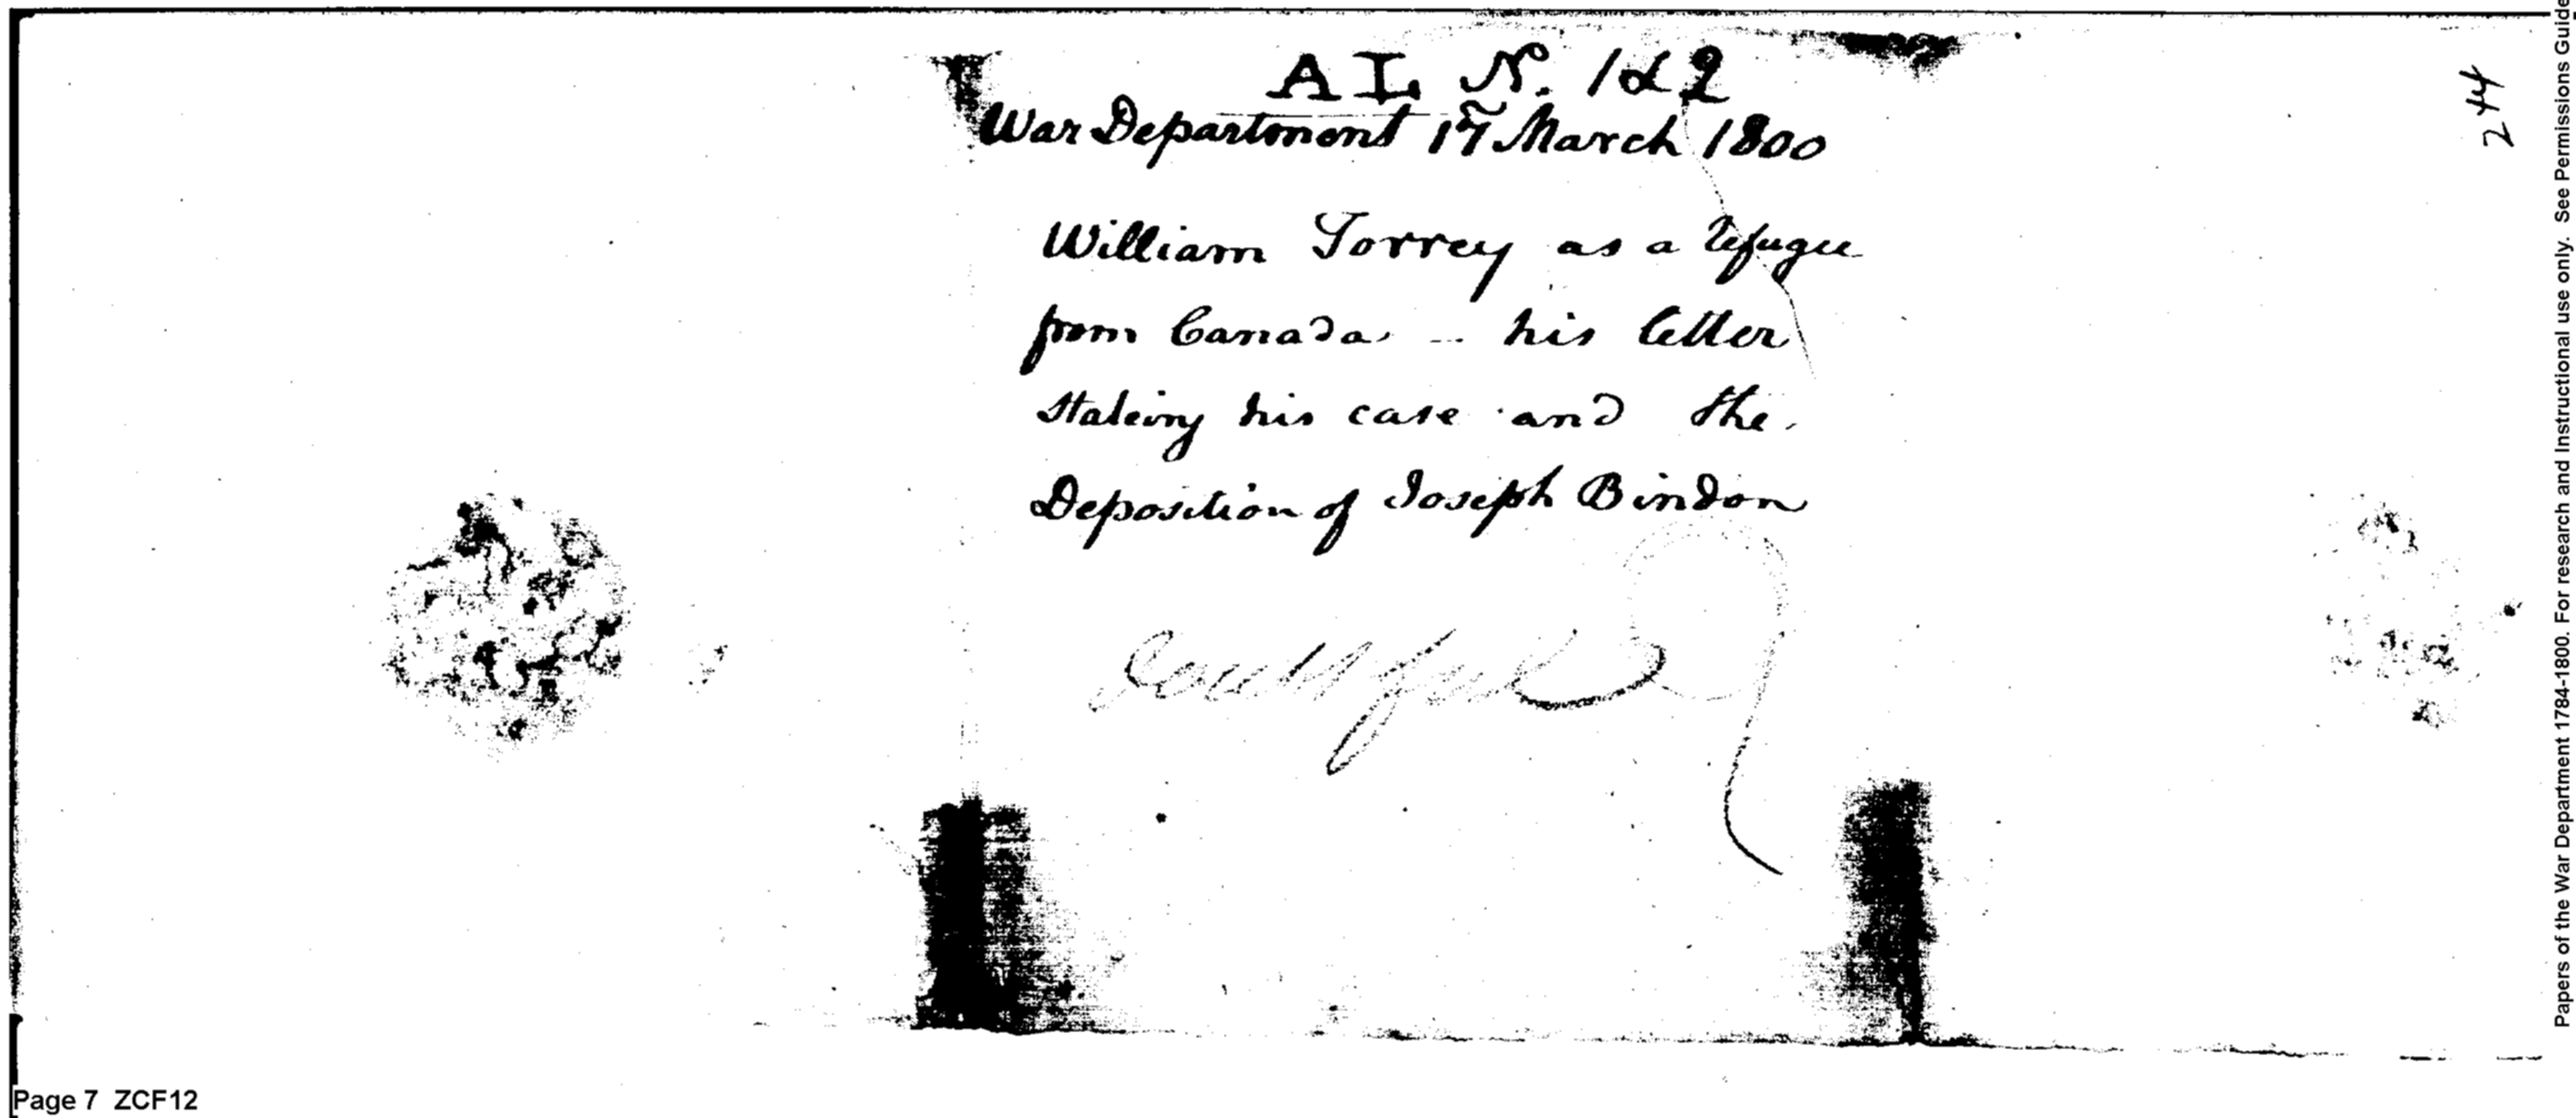 A L N. 1 & 2
War Department 17 March 1800
William Torrey as a refugee
from Canada - his letter
stateing his case and the
Deposition of Joseph Bindon
244
Papers of the War Department 1784-1800. For research and Instructional use only. See Permissions Guide
Page 7 ZCF12